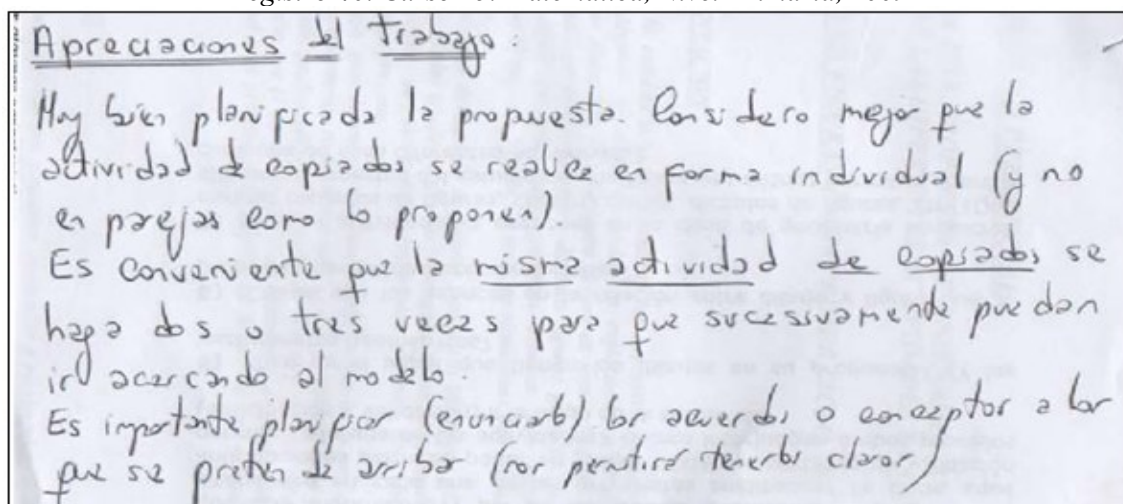 Apreciaciones del trabajo:
Muy bien planificada la propuesta. Considero mejor que la
actividad de copiados se realice en forma individual (y no
en parejas como lo proponen).
Es conveniente que la misma actividad de copiados se
haga dos o tres veces para que sucesivamente puedan
ir acercando al modelo.
Es importante planificar (enunciarlo) los acuerdos o conceptos a los
que se pretende arribar (nos permitirá tenerlos claros)